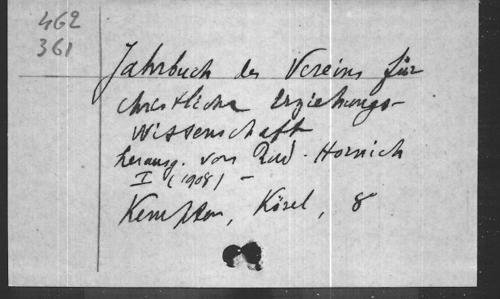 462
361
Jahrbuch des Vereins für
christliche Erziehungs-
wissenschaft
herausg. von Rud. Hornich
I (1908) –
Kempten, Kösel, 8